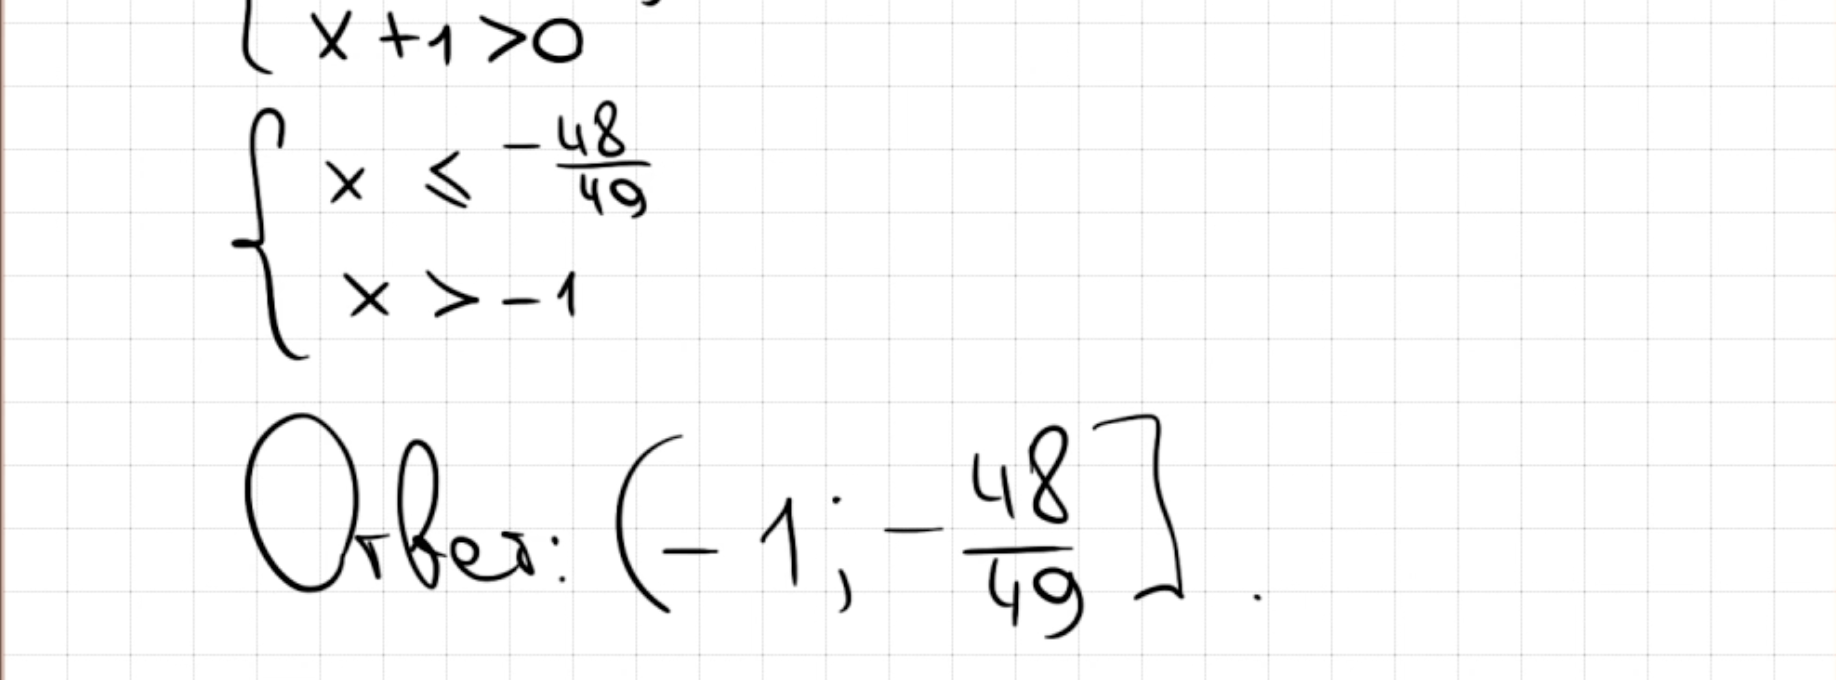 x + 1 > 0
x ≤ -48/49
x > -1
Ответ: (-1; -48/49].